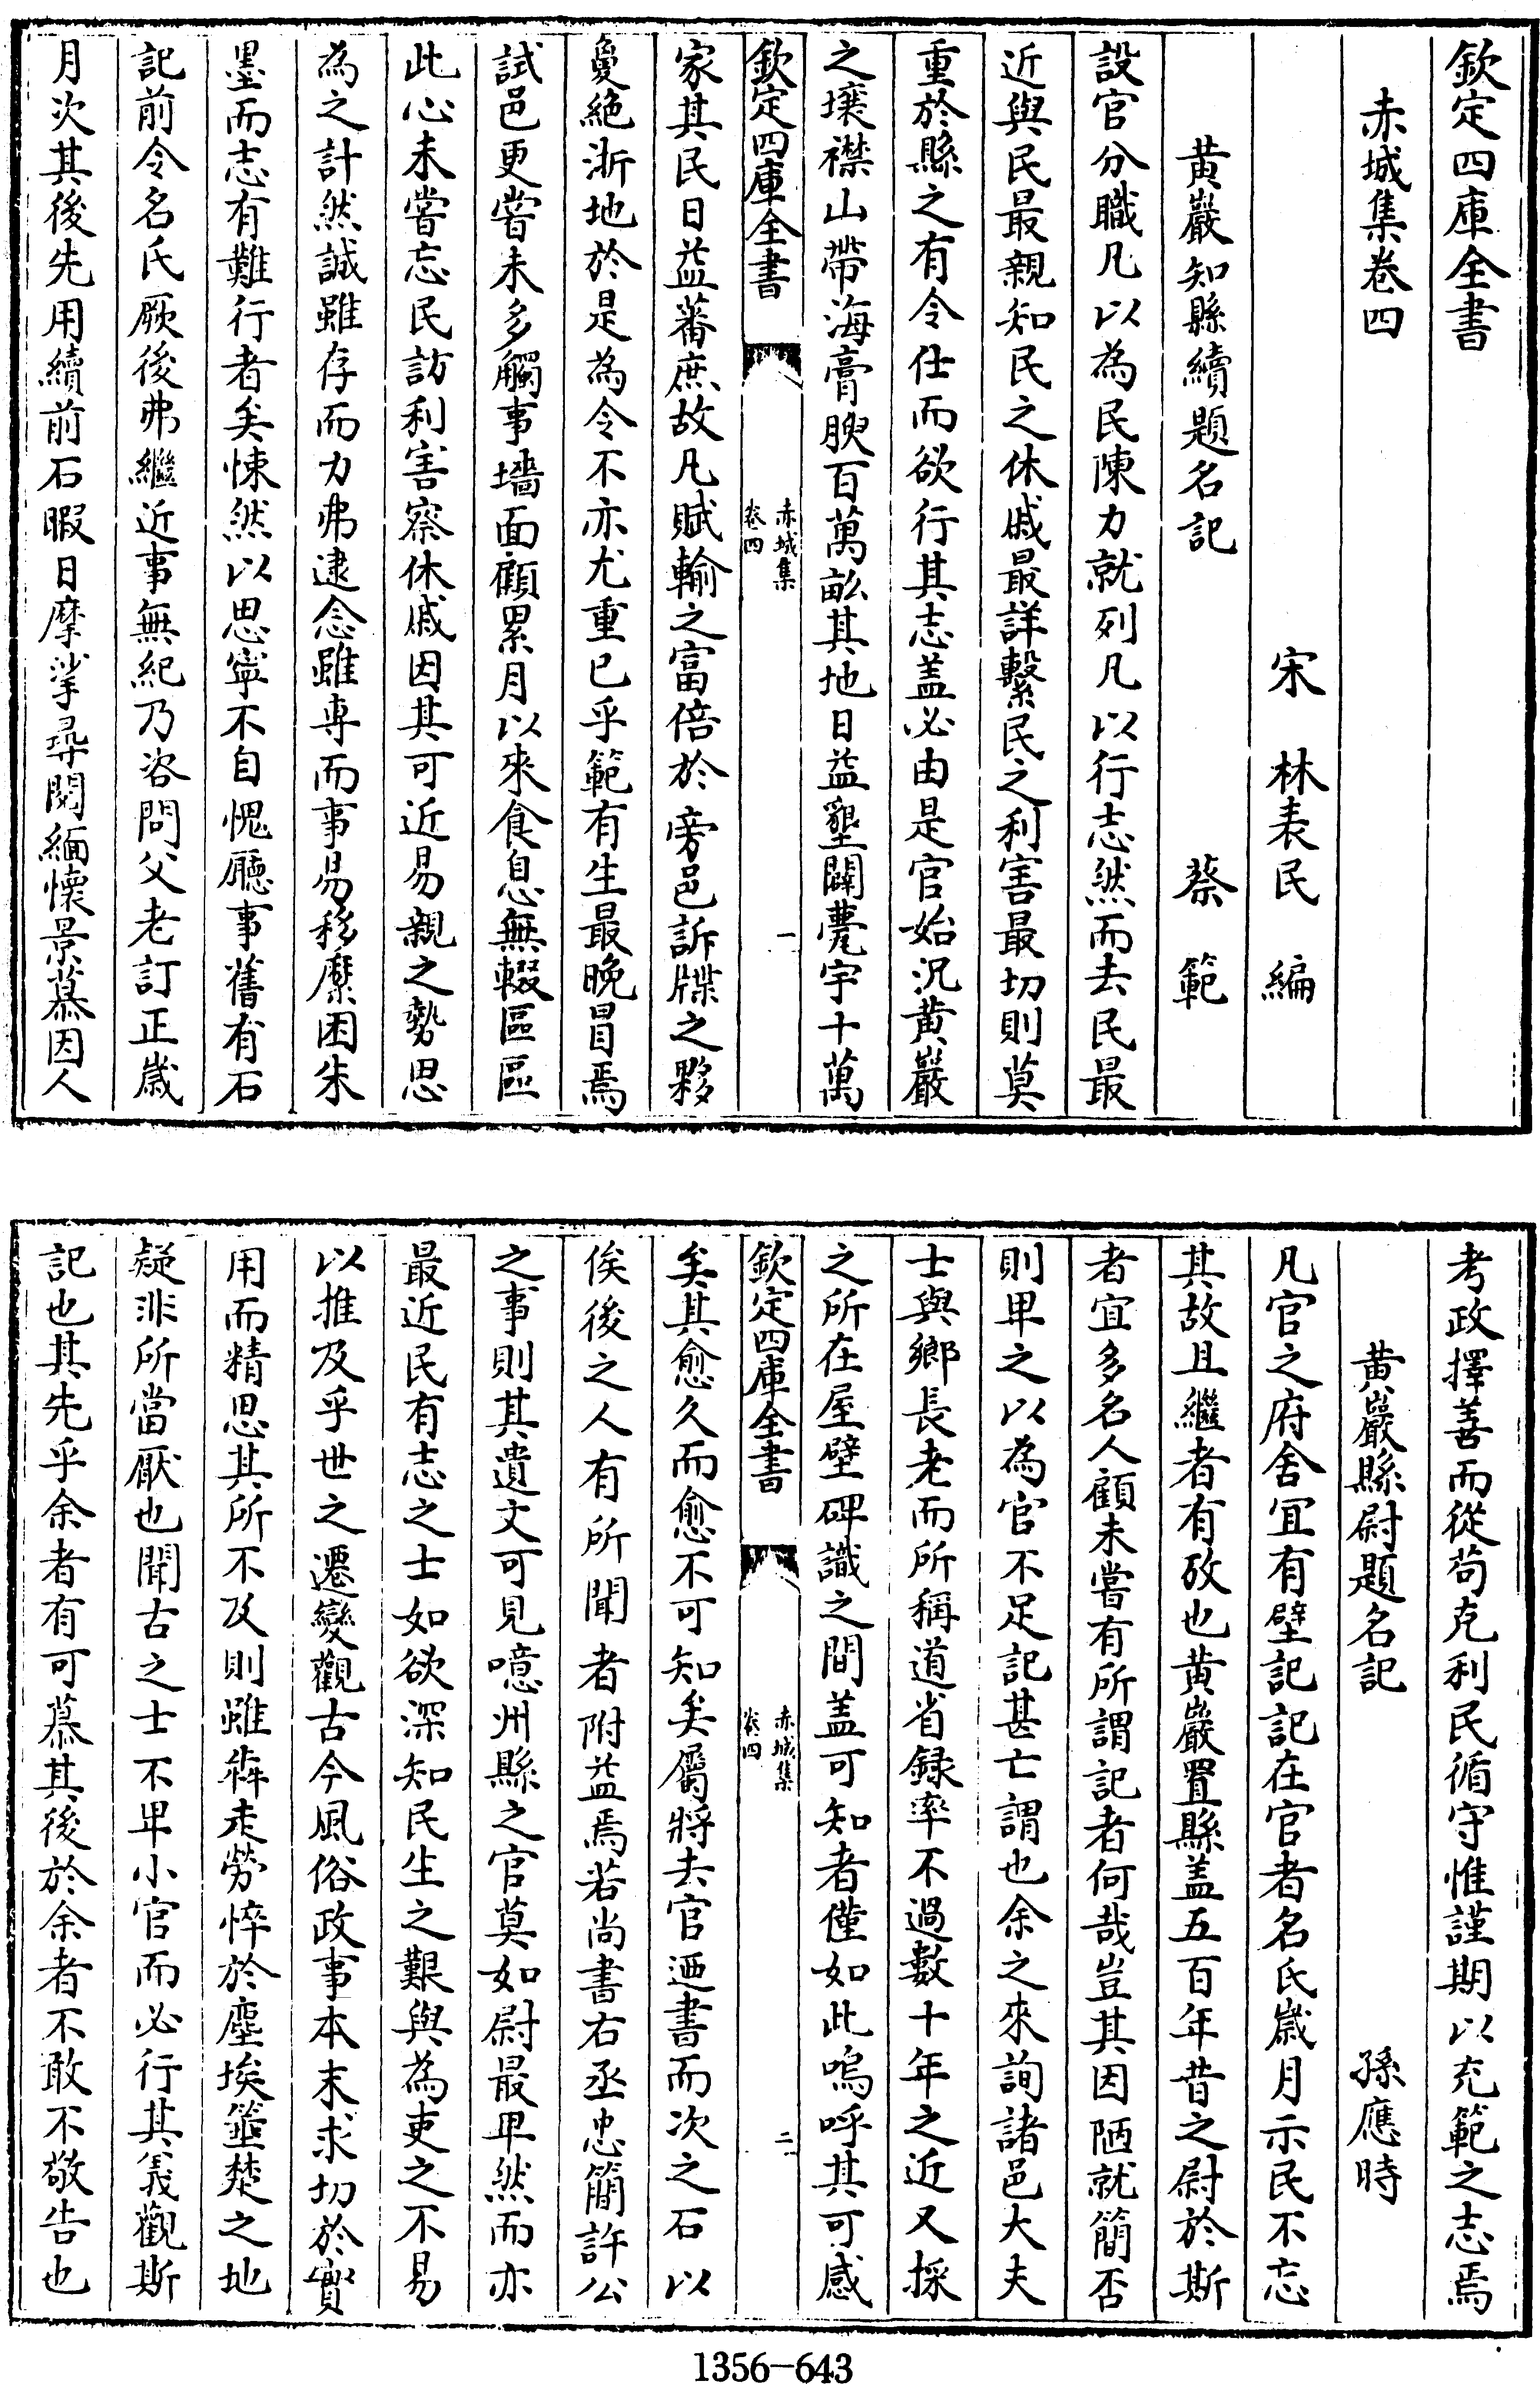 欽定四庫全書
赤城集卷四
宋 林表民 編
黃巖知縣續題名記 蔡範
設官分職凡以為民陳力就列凡以行志然而去民最
近與民最親知民之休戚最詳繫民之利害最切則莫
重於縣之有令仕而欲行其志盖必由是官始況黃巖
之壤襟山帶海膏腴百萬畝其地日益墾闢甍宇十萬
欽定四庫全書
赤城集
卷四
一
家其民日益蕃庶故凡賦輸之富倍於旁邑訴牒之夥
敻絶浙地於是為令不亦尤重已乎範有生最晚冒焉
試邑更嘗未多觸事墻面顧累月以來食息無輟區區
此心未嘗忘民訪利害察休戚因其可近易親之勢思
為之計然誠雖存而力弗逮念雖専而事易移縻困朱
墨而志有難行者矣悚然以思寧不自愧廳事舊有石
記前令名氏厥後弗繼近事無紀乃咨問父老訂正歲
月次其後先用續前石暇日摩挲尋閱緬懷景慕因人
考政擇善而從苟克利民循守惟謹期以充範之志焉
黃巖縣尉題名記 孫應時
凡官之府舍宜有壁記記在官者名氏歲月示民不忘
其故且繼者有攷也黃巖置縣盖五百年昔之尉於斯
者宜多名人顧未嘗有所謂記者何哉豈其因陋就簡否
則卑之以為官不足記甚亡謂也余之來詢諸邑大夫
士與鄉長老而所稱道省録率不過數十年之近又採
之所在屋壁碑識之間盖可知者僅如此嗚呼其可感
欽定四庫全書
赤城集
卷四
二
矣其愈久而愈不可知矣屬將去官迺書而次之石以
俟後之人有所聞者附益焉若尚書右丞忠簡許公
之事則其遺文可見噫州縣之官莫如尉最卑然而亦
最近民有志之士如欲深知民生之艱與為吏之不易
以推及乎世之遷變觀古今風俗政事本末求切於實
用而精思其所不及則雖犇走勞悴於塵埃箠楚之地
疑非所當厭也聞古之士不卑小官而必行其義觀斯
記也其先乎余者有可慕其後於余者不敢不敬告也
1356-643